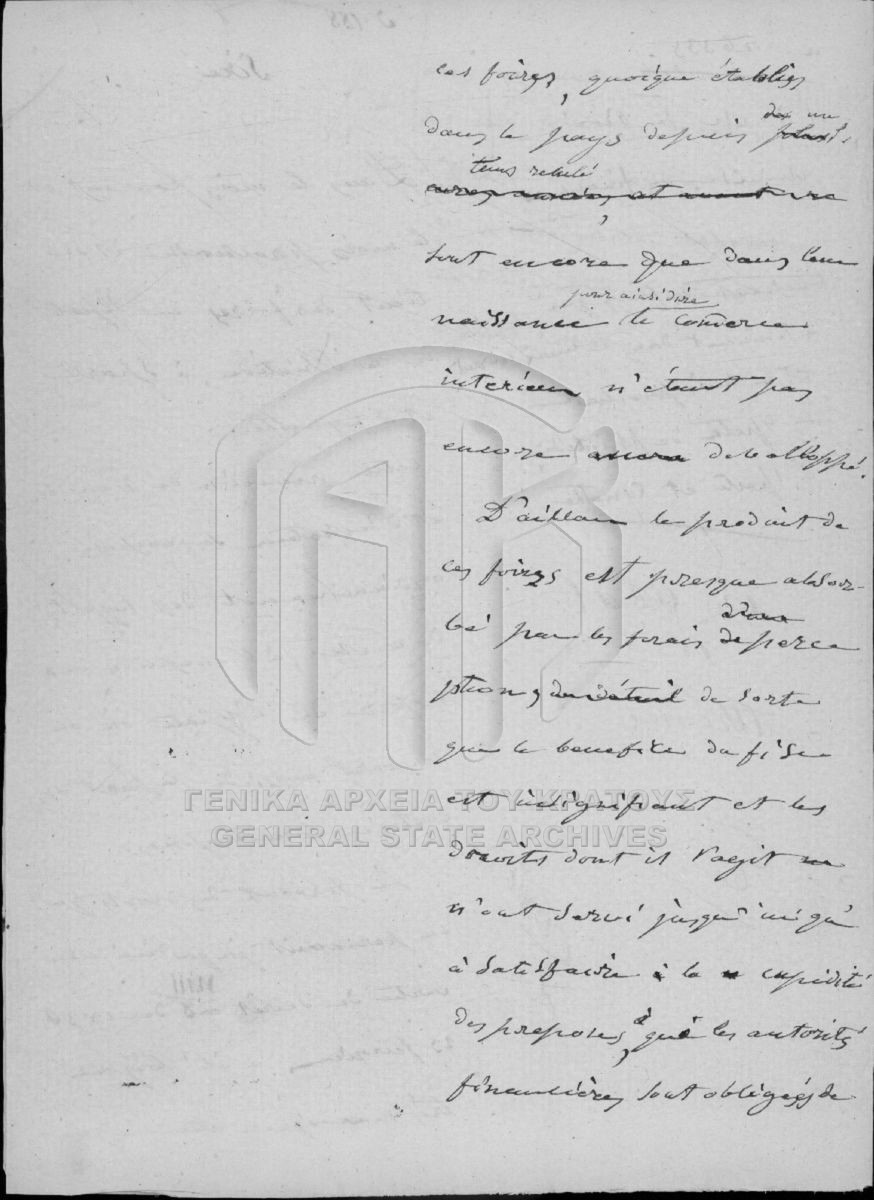 ces foires, quoique établies
dans le pays depuis un
tems reculé
sont encore que dans leur
pour ainsi dire
naissance le comerce
interieur n'étant pas
encore developpé.
D'ailleur le produit de
ces foires est presque absor-
bé par les frais de perce
ption, de sorte
que le benefice du fisc
est insignifiant et les
ΓΕΝΙΚΑ ΑΡΧΕΙΑ ΤΟΥ ΚΡΑΤΟΥΣ
GENERAL STATE ARCHIVES
droits dont il s'agit
n'ont servi jusqu'ici qu'
à satisfaire la cupidité
des preposés, à qui les autorités
financières sont obligées de